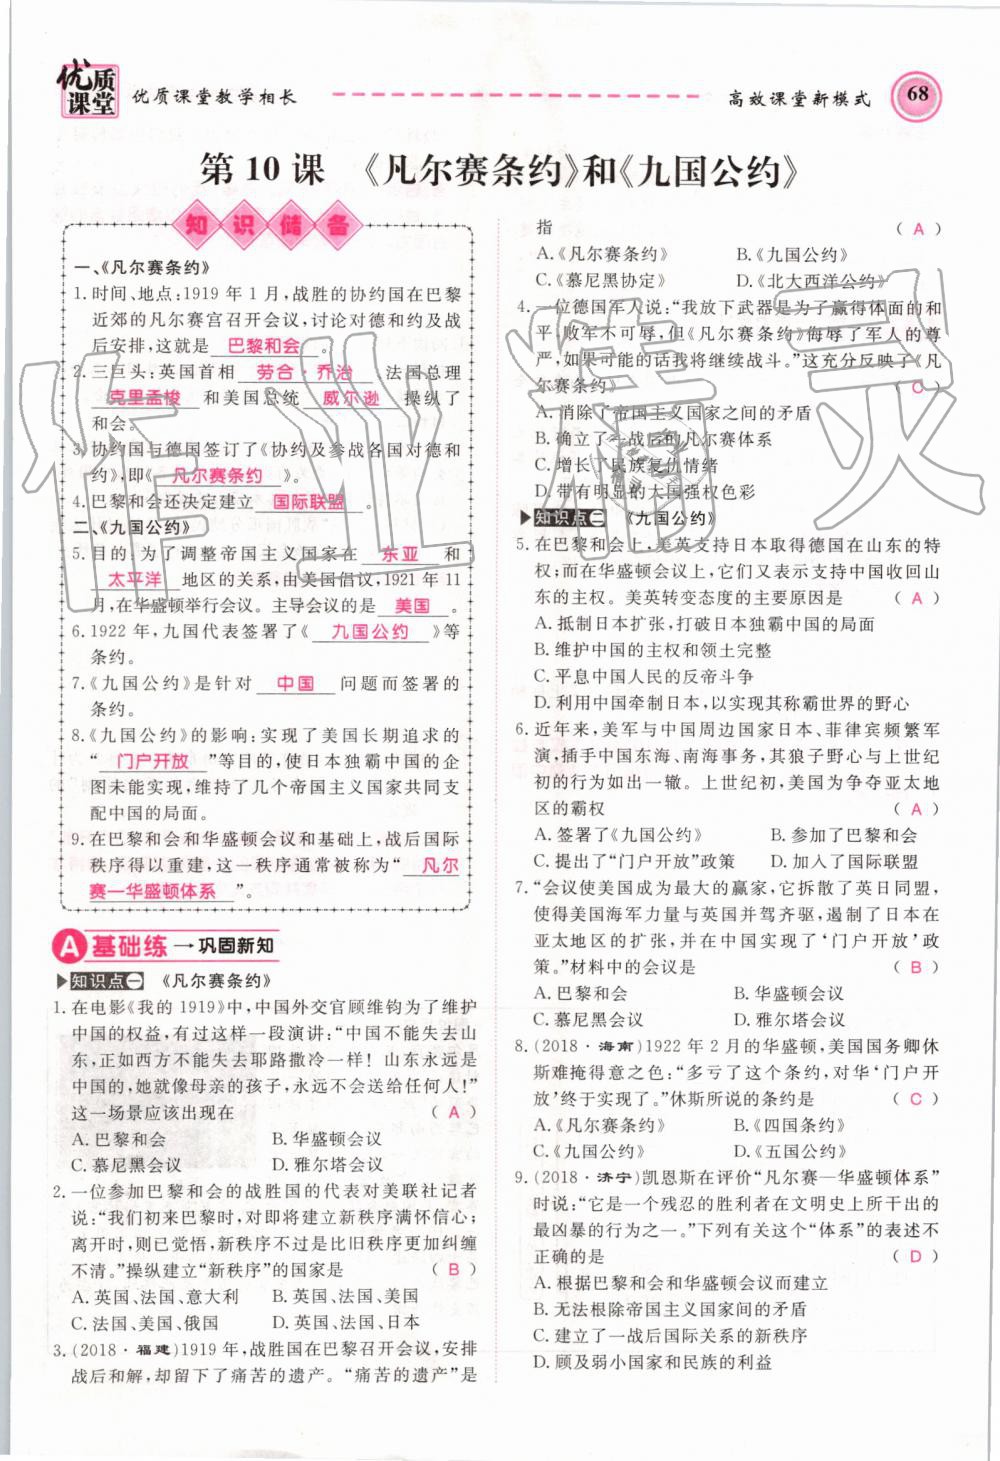 优质课堂
优质课堂教学相长
高效课堂新模式
68
第10课 《凡尔赛条约》和《九国公约》
知识储备
一、《凡尔赛条约》
1. 时间、地点:1919年1月,战胜的协约国在巴黎
近郊的凡尔赛宫召开会议,讨论对德和约及战
后安排,这就是 巴黎和会 。
2. 三巨头:英国首相 劳合·乔治 法国总理
克里孟梭 和美国总统 威尔逊 操纵了
和会。
3. 协约国与德国签订了《协约及参战各国对德和
约》,即《 凡尔赛条约 》。
4. 巴黎和会还决定建立 国际联盟 。
二、《九国公约》
5. 目的:为了调整帝国主义国家在 东亚 和
太平洋 地区的关系,由美国倡议,1921年11
月,在华盛顿举行会议。主导会议的是 美国 。
6. 1922年,九国代表签署了《 九国公约 》等
条约。
7.《九国公约》是针对 中国 问题而签署的
条约。
8.《九国公约》的影响:实现了美国长期追求的
“ 门户开放 ”等目的,使日本独霸中国的企
图未能实现,维持了几个帝国主义国家共同支
配中国的局面。
9. 在巴黎和会和华盛顿会议和基础上,战后国际
秩序得以重建,这一秩序通常被称为“ 凡尔
赛—华盛顿体系 ”。
A 基础练 → 巩固新知
知识点一 《凡尔赛条约》
1. 在电影《我的1919》中,中国外交官顾维钧为了维护
中国的权益,有过这样一段演讲:“中国不能失去山
东,正如西方不能失去耶路撒冷一样!山东永远是
中国的,她就像母亲的孩子,永远不会送给任何人!”
这一场景应该出现在 ( A )
A. 巴黎和会 B. 华盛顿会议
C. 慕尼黑会议 D. 雅尔塔会议
2. 一位参加巴黎和会的战胜国的代表对美联社记者
说:“我们初来巴黎时,对即将建立新秩序满怀信心;
离开时,则已觉悟,新秩序不过是比旧秩序更加纠缠
不清。”操纵建立“新秩序”的国家是 ( B )
A. 英国、法国、意大利 B. 英国、法国、美国
C. 法国、美国、俄国 D. 英国、法国、日本
3. (2018·福建)1919年,战胜国在巴黎召开会议,安排
战后和解,却留下了痛苦的遗产。“痛苦的遗产”是
指 ( A )
A.《凡尔赛条约》 B.《九国公约》
C.《慕尼黑协定》 D.《北大西洋公约》
4. 一位德国军人说:“我放下武器是为了赢得体面的和
平,败军不可辱,但《凡尔赛条约》侮辱了军人的尊
严,如果可能的话我将继续战斗。”这充分反映了《凡
尔赛条约》 ( C )
A. 消除了帝国主义国家之间的矛盾
B. 确立了一战后的凡尔赛体系
C. 增长了民族复仇情绪
D. 带有明显的大国强权色彩
知识点二 《九国公约》
5. 在巴黎和会上,美英支持日本取得德国在山东的特
权;而在华盛顿会议上,它们又支持中国收回山
东的主权。美英转变态度的主要原因是 ( A )
A. 抵制日本扩张,打破日本独霸中国的局面
B. 维护中国的主权和领土完整
C. 平息中国人民的反帝斗争
D. 利用中国牵制日本,以实现其称霸世界的野心
6. 近年来,美军与中国周边国家日本、菲律宾频繁军
演,插手中国东海、南海事务,其狼子野心与上世纪
初的行为如出一辙。上世纪初,美国为争夺亚太地
区的霸权 ( A )
A. 签署了《九国公约》 B. 参加了巴黎和会
C. 提出了“门户开放”政策 D. 加入了国际联盟
7. “会议使美国成为最大的赢家,它拆散了英日同盟,
使得美国海军力量与英国并驾齐驱,遏制了日本在
亚太地区的扩张,并在中国实现了‘门户开放’政
策。”材料中的会议是 ( B )
A. 巴黎和会 B. 华盛顿会议
C. 慕尼黑会议 D. 雅尔塔会议
8. (2018·海南)1922年2月的华盛顿,美国国务卿休
斯难掩得意之色:“多亏了这个条约,对华‘门户开
放’终于实现了。”休斯所说的条约是 ( C )
A.《凡尔赛条约》 B.《四国条约》
C.《九国公约》 D.《五国公约》
9. (2018·济宁)凯恩斯在评价“凡尔赛—华盛顿体系”
时说:“它是一个残忍的胜利者在文明史上所干出的
最凶暴的行为之一。”下列有关这个“体系”的表述不
正确的是 ( D )
A. 根据巴黎和会和华盛顿会议而建立
B. 无法根除帝国主义国家间的矛盾
C. 建立了一战后国际关系的新秩序
D. 顾及弱小国家和民族的利益
作业精灵